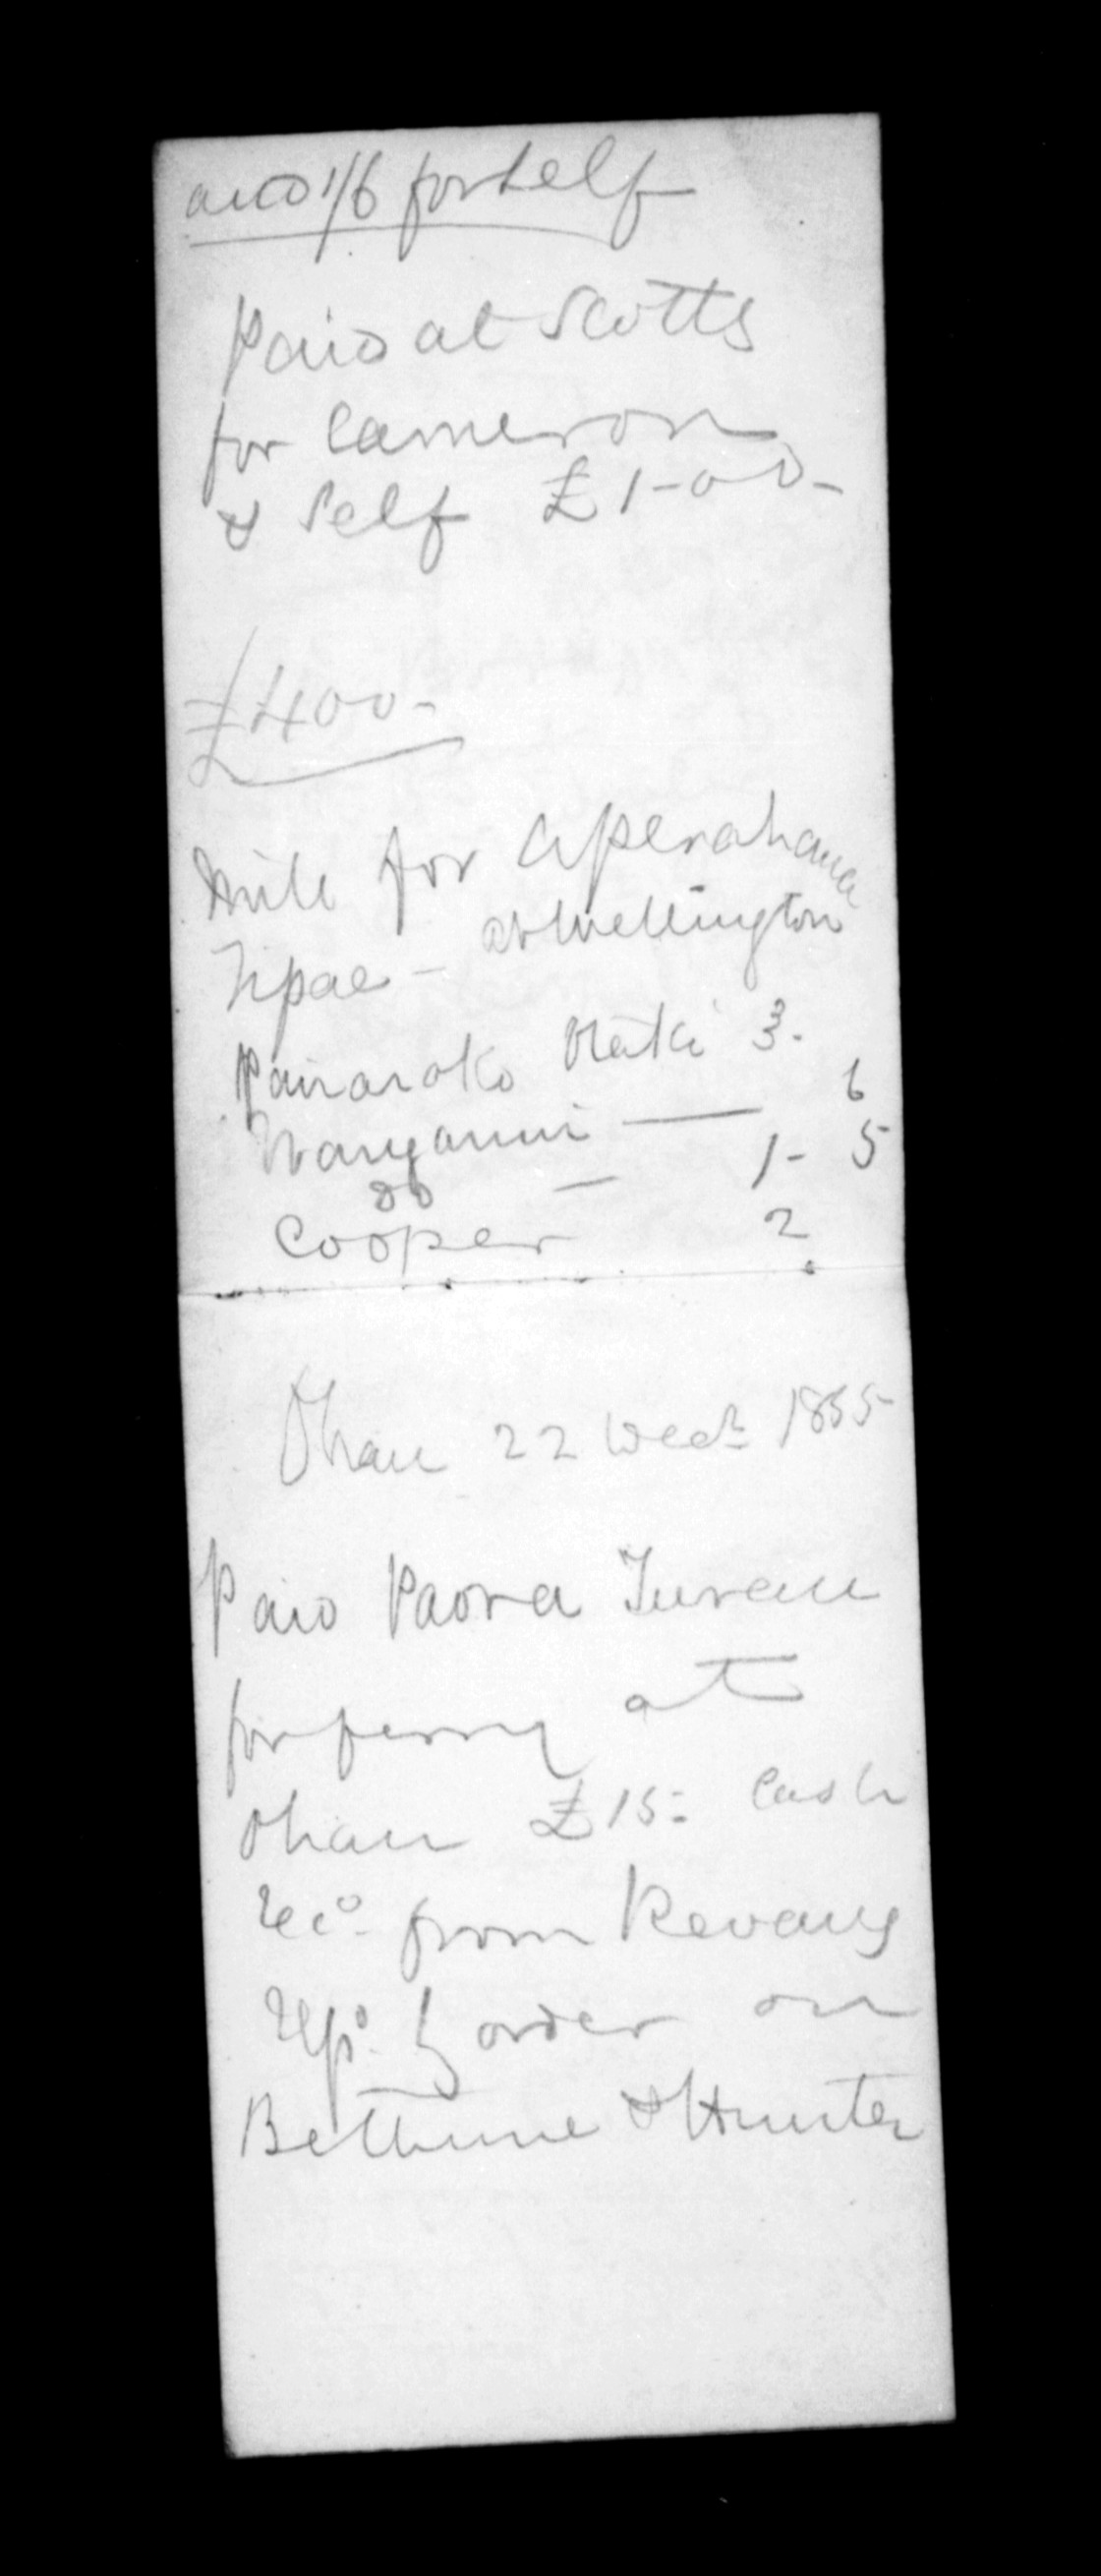 and 1/6 for self
Paid at Scotts
for Cameron
& Self £1-00-
£400-
for Aperahama
Tipae - at Wellington
Pairaroko Otaki 3-
Wanganui — 6
do — 1- 5
Cooper 2
Ohau 22 Decr 1855
Paid Paora Turau
for ferry at
Ohau £15: Cash
Recd from Revans
Repd by order on
Bethune & Hunter